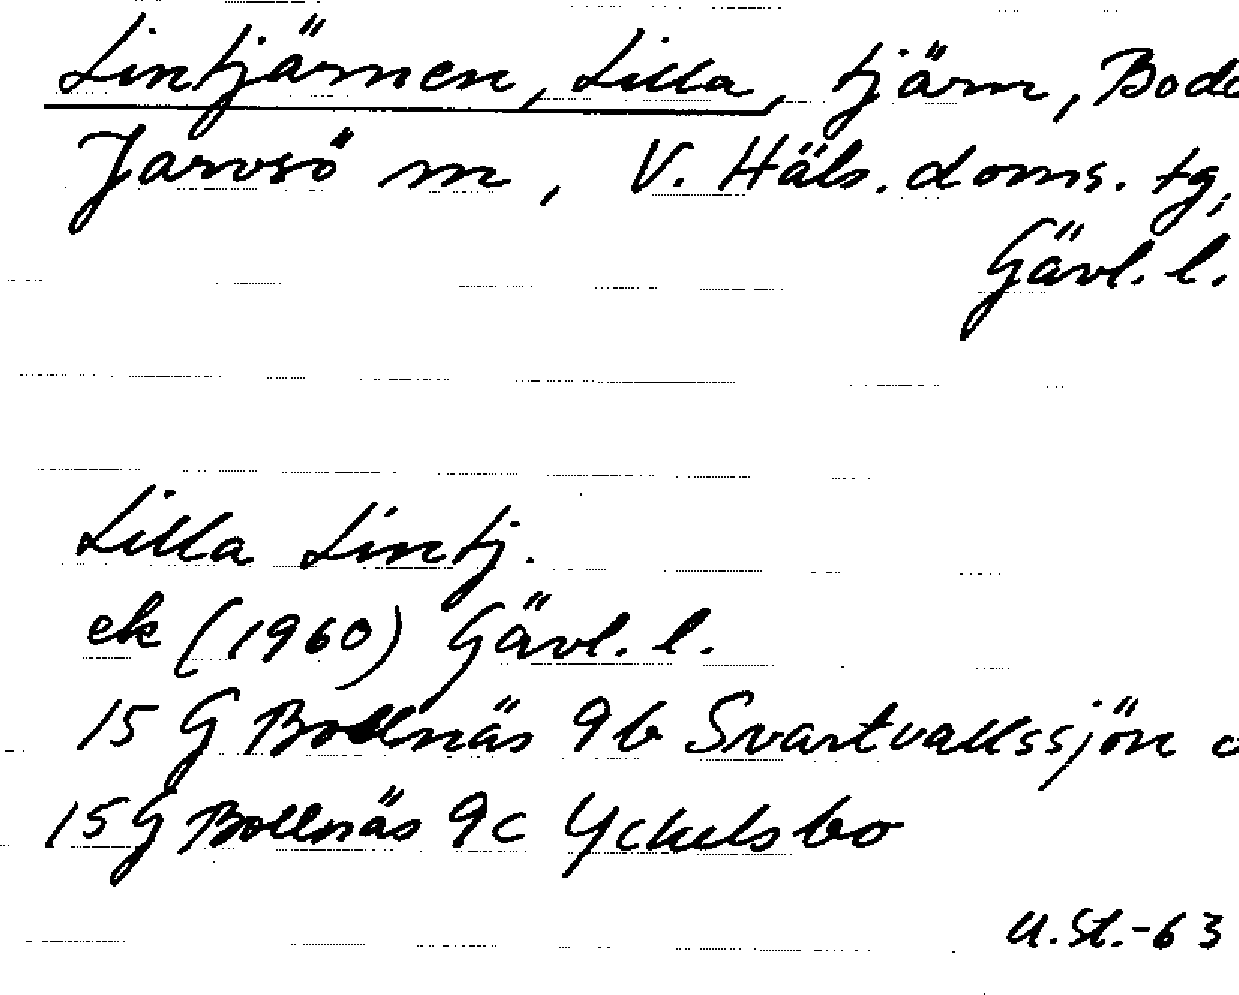 Lintjärnen, Lilla, tjärn, Boda
Jarvsö m, V. Häls. doms. tg,
Gävl. l.
Lilla Lintj.
ek (1960) Gävl. l.
15 G Bollnäs 9b Svartvallssjön o
15G Bollnäs 9c Yckelsbo
U.St.-63